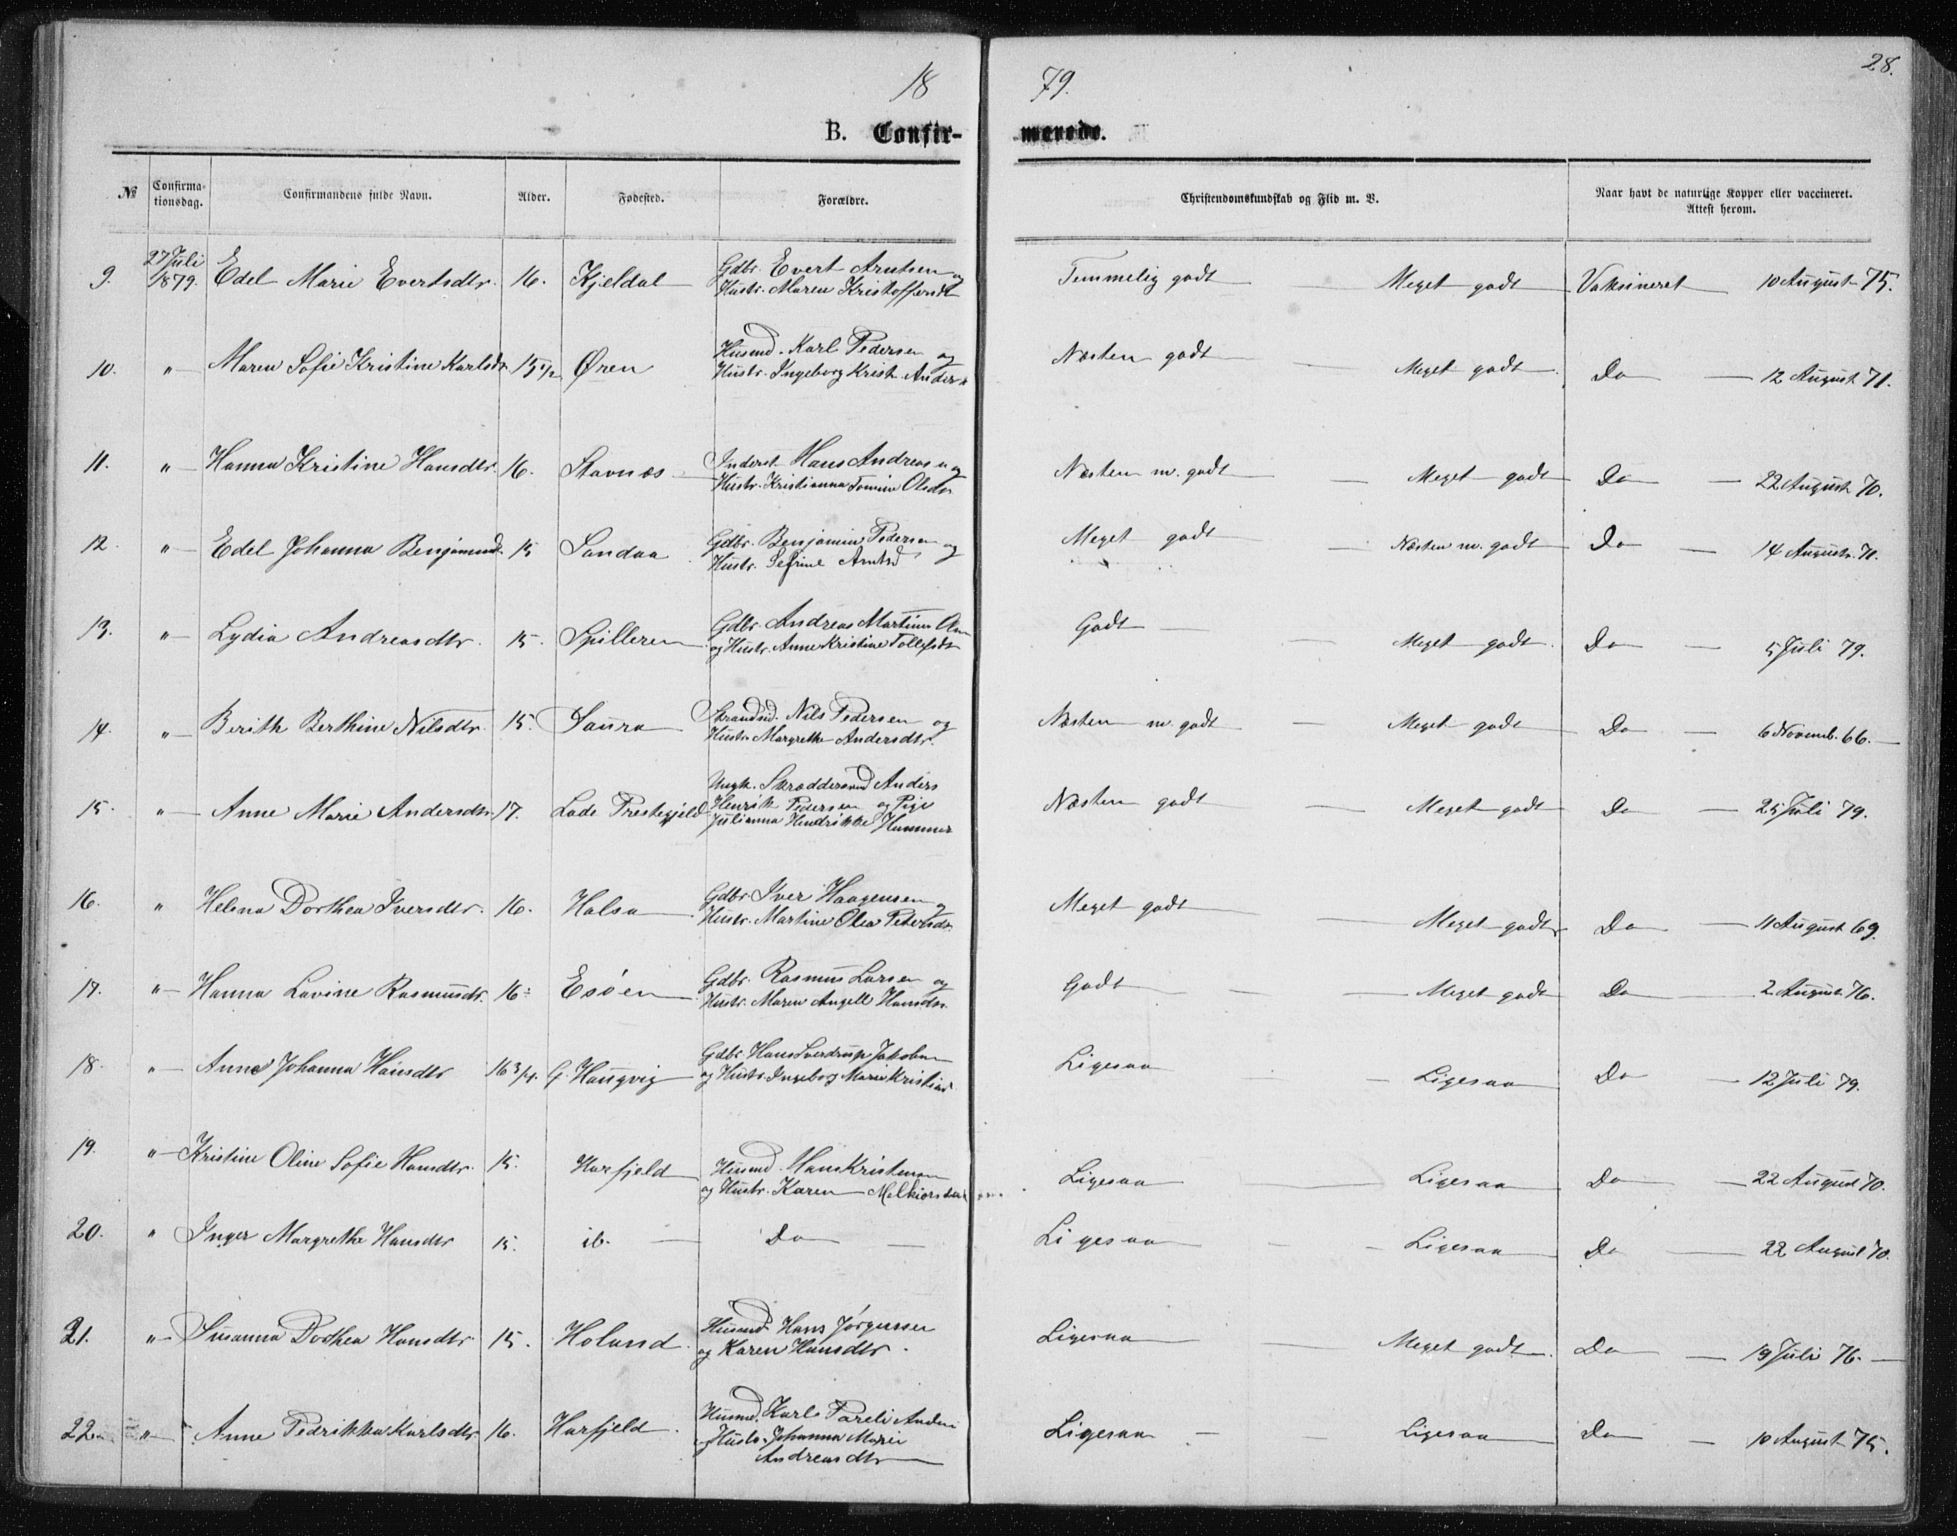 18 79. 28.
B. Confir- merede.
№ Confirma- tionsdag. Confirmandens fulde Navn. Alder. Fødested. Forældre. Christendomskundskab og Flid m. V. Naar havt de naturlige Kopper eller vaccineret. Attest herom.
9. 27 Juli 1879. Edel Marie Evertsdtr. 16. Kjeldal Gdbr. Evert Arntsen og Hustr. Maren Kristoffersdt Temmelig godt Meget godt Vaksineret 10 August 75.
10. " Maren Sofie Kristine Karlsdr 15 1/2 Øren Husmd. Karl Pedersen og Hustr. Ingeborg Krist. Anders Næsten godt Meget godt Do 12 August 71.
11. " Hanna Kristine Hansdtr. 16. Stavnæs Inderst Hans Andreas n og Hustr. Kristianna Tomine Olsdr Næsten m. godt Meget godt Do 22 August 70.
12. " Edel Johanna Benjaminsd. 15 Sandaa Gdbr. Benjamin Pedersen og Hustr. Sefrine Arntsd Meget godt Næsten m. godt Do 14 August. 71.
13. " Lydia Andreasdtr. 15. Spilleren Gdbr. Andreas Martinus og Hustr. Anne Kristine Tollefsdt Godt Meget godt. Do 5 Juli 79.
14. " Berith Berthine Nilsdtr. 15. Saura Strandsd. Nils Pedersen og Hustr. Margrethe Andersdtr. Næsten m. godt Meget godt Do 6 Novemb. 66.
15. " Anne Marie Andersdtr. 17. Lade Prestegjeld Ungk. Skræddersvd Anders Henrik Pedersen og Pige Julianna Hendrikke Hammer Næsten godt Meget godt Do 25 Juli 79.
16. " Helena Dorthea Iversdtr. 16. Halsa Gdbr Iver Haagensen og Hustr. Martine Olea Petersdr. Meget godt Meget godt Do 11 August 69.
17. " Hanna Lavine Rasmusdr. 16. Esöen Gdbr. Rasmus Larsen og Hustr. Maren Angell Hansdtr. Godt Meget godt Do 2 August 76.
18. " Anne Johanna Hansdtr 16 3/4. G. Haugvig Gdbr. Hans Sverdrup Jakobsen og Hustr. Ingeborg Marie Kristiansd Ligesaa Ligesaa Do 12 Juli 79.
19. " Kristine Oline Sofie Hansdtr. 15. Harfjeld Husmd. Hans Kristensen og Hustr. Karen Melkiorsdatr Ligesaa Ligesaa Do 22 August 70.
20. " Inger Margrethe Hansdtr 15. ib. Do Ligesaa Ligesaa Do 22 August 70.
21. " Susanna Dorthea Hansdtr 15. Holand. Husmd. Hans Jørgensen og Karen Hansdtr. Ligesaa Meget godt. Do 19 Juli 76.
22. " Anne Pedrikka Karlsdtr 16. Harfjeld. Husmd. Karl Pareli Anders Hustr. Johanna Marie Andreasdtr Ligesaa Ligesaa Do 10 August 75.